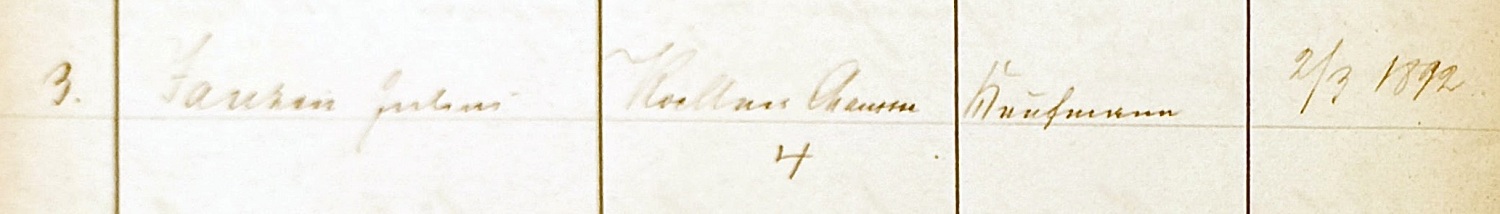 3. Janzen Julius Koellner Chaussee Kaufmann 2/3 1892
4